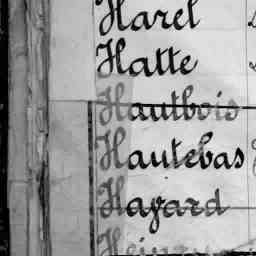 Harel
Hatte
Hautbois
Hautebas
Hayard